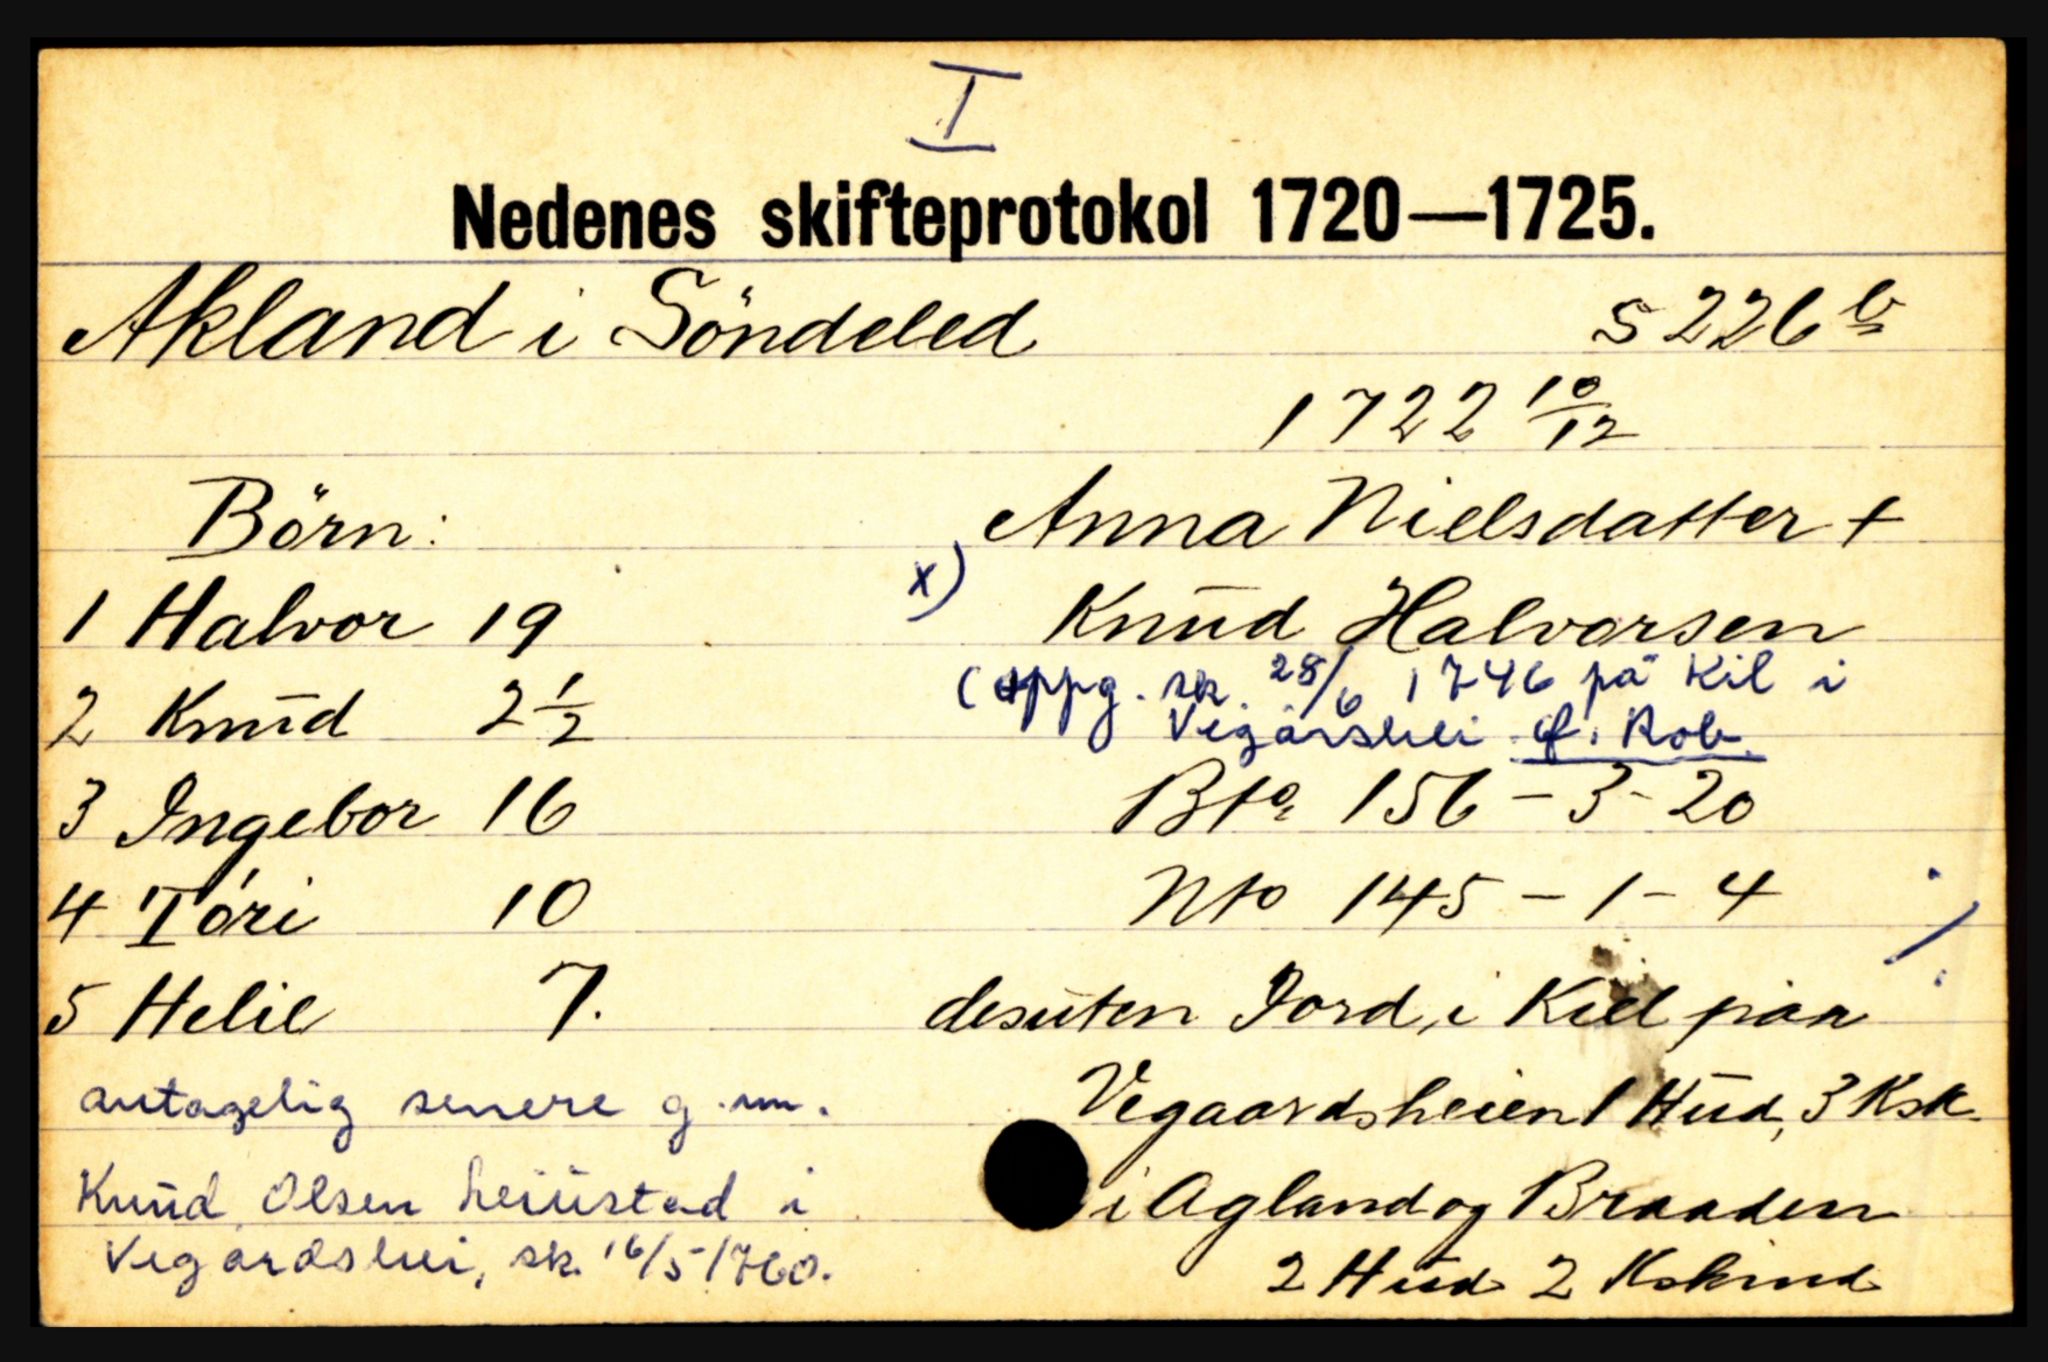 I
Nedenes skifteprotokol 1720—1725.
Akland i Söndeled S 226 b
1722 10/12
Börn: Anna Nielsdatter +
1 Halvor 19 x) Knud Halvorsen
(oppg. sk. 28/6 1746 på Kil i
2 Knud 2 1/2 Vegårshei cf. Rob.
3 Ingebor 16 Bto 156 - 3 - 20
4 Tóri 10 Nto 145 - 1 - 4
5 Helie 7. desuten Jord, i Kiel paa
antagelig senere g.m. Vegaardsheien 1 Hud, 3 Ksk.
Knud Olsen Heiustad i i Agland og Braaden
Vegardshei, sk. 16/5 1760. 2 Hud 2 Kskind